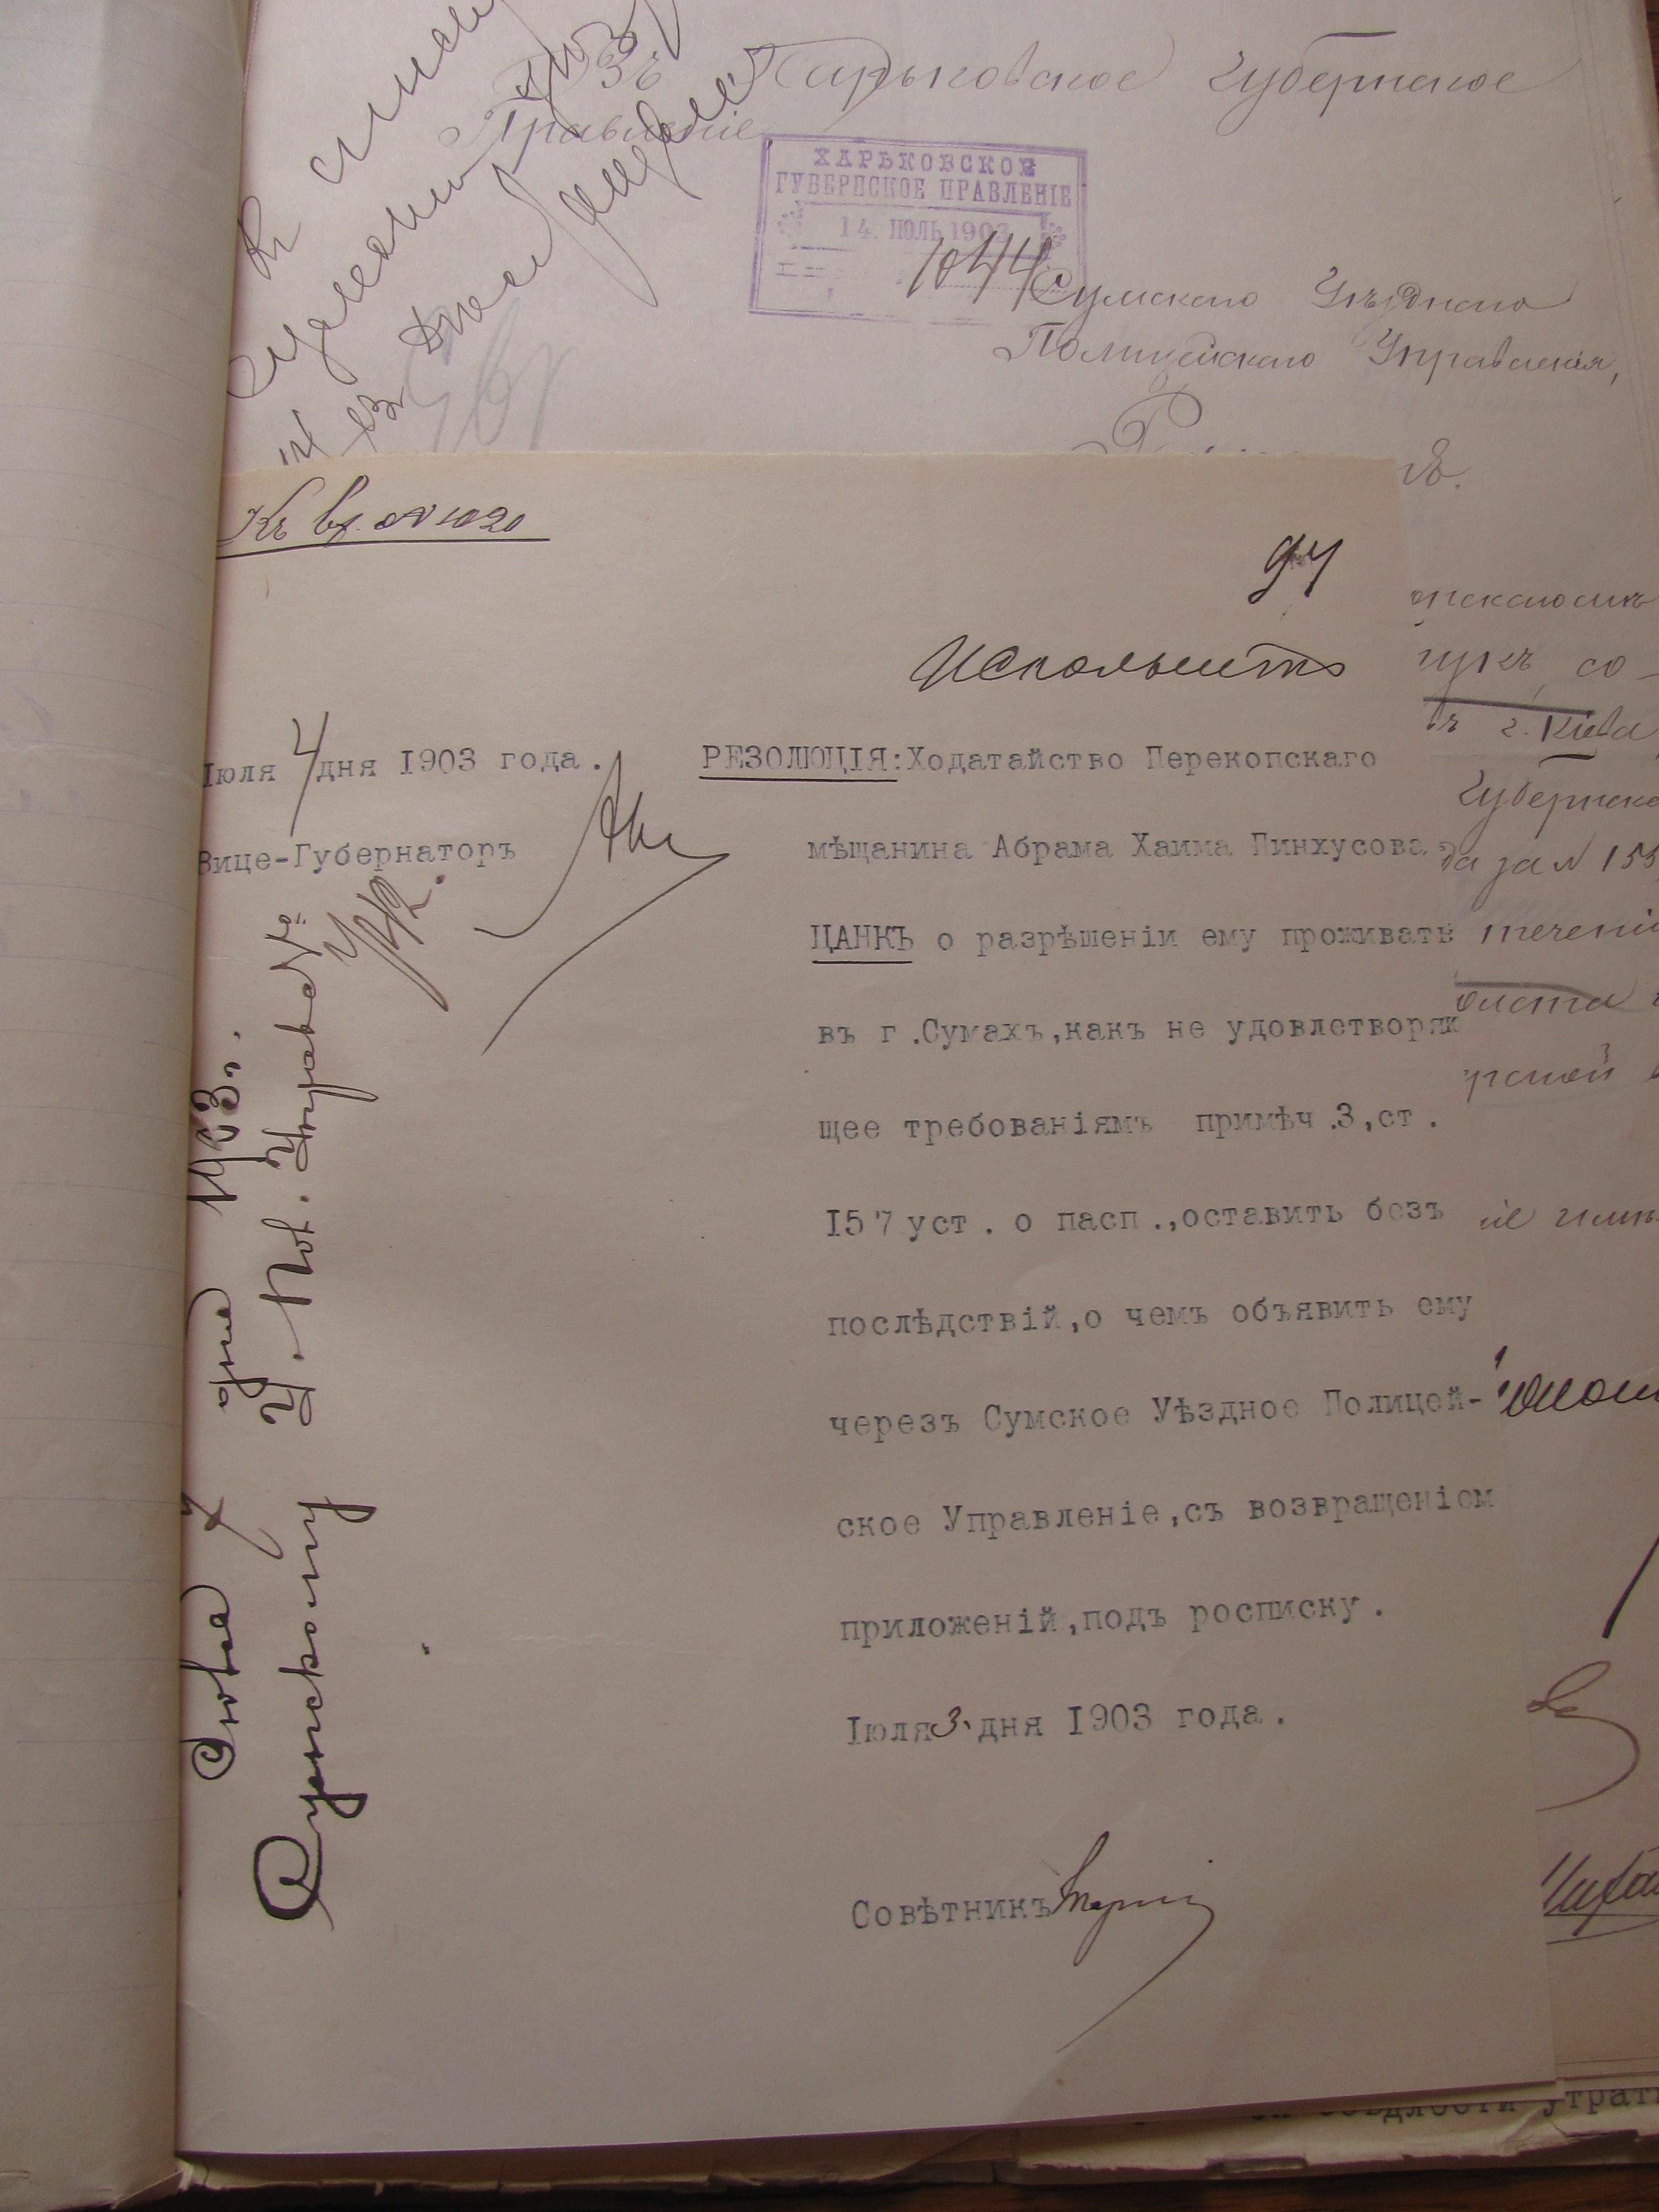 Въ Харьковское Губернское
Правленіе
ХАРЬКОВСКОЕ
ГУБЕРНСКОЕ ПРАВЛЕНІЕ
14. ІЮЛЬ 1903
1044
Сумскаго Уѣзднаго
Полицейскаго Управленія,
Къ вх. № 1020
94
Исполнить
Іюля 4 дня 1903 года.
Вице-Губернаторъ
РЕЗОЛЮЦІЯ: Ходатайство Перекопскаго
мѣщанина Абрама Хаима Пинхусова
ЦАНКЪ о разрѣшеніи ему проживать
въ г.Сумахъ,какъ не удовлетворяю
щее требованіямъ примѣч.3,ст.
157 уст. о пасп.,оставить безъ
послѣдствій,о чемъ объявить ему
черезъ Сумское Уѣздное Полицей-
ское Управленіе,съ возвращеніем
приложеній,подъ росписку.
Іюля 3 дня 1903 года.
Совѣтникъ
Іюля 7 дня 1903.
Сумскому У. Пол. Управ
со-
въ г. Кіева
Губернско
да за № 155
течені
утрат